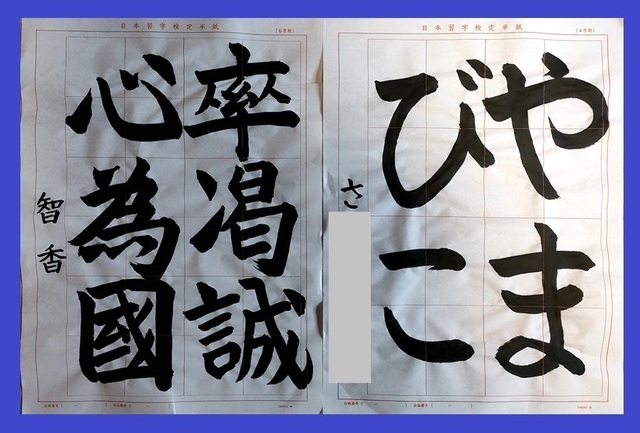 日本習字検定半紙
やま
びこ
さ
日本習字検定半紙
率渇誠
心為國
智香